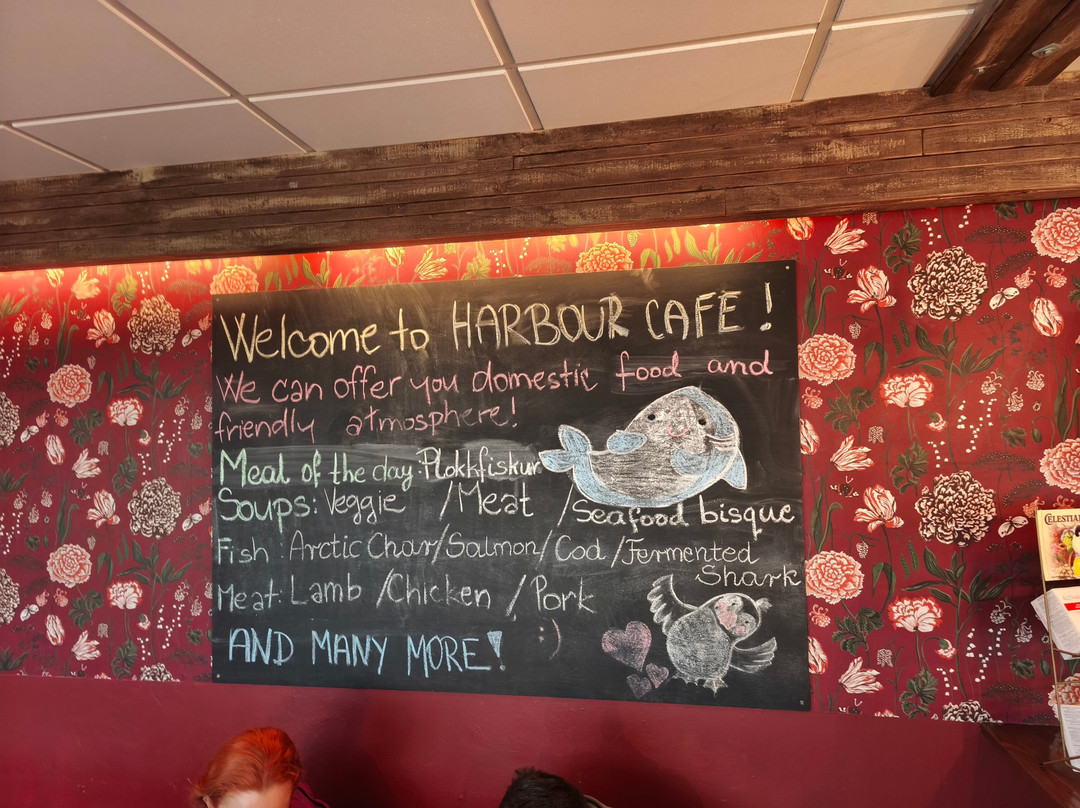 Welcome to HARBOUR CAFE !
We can offer you domestic food and
friendly atmosphere!
Meal of the day: Plokkfiskur
Soups: Veggie / Meat / Seafood bisque
Fish: Arctic Char/Salmon/Cod/Fermented
Shark
Meat: Lamb / Chicken / Pork
AND MANY MORE! :)
CELESTIA